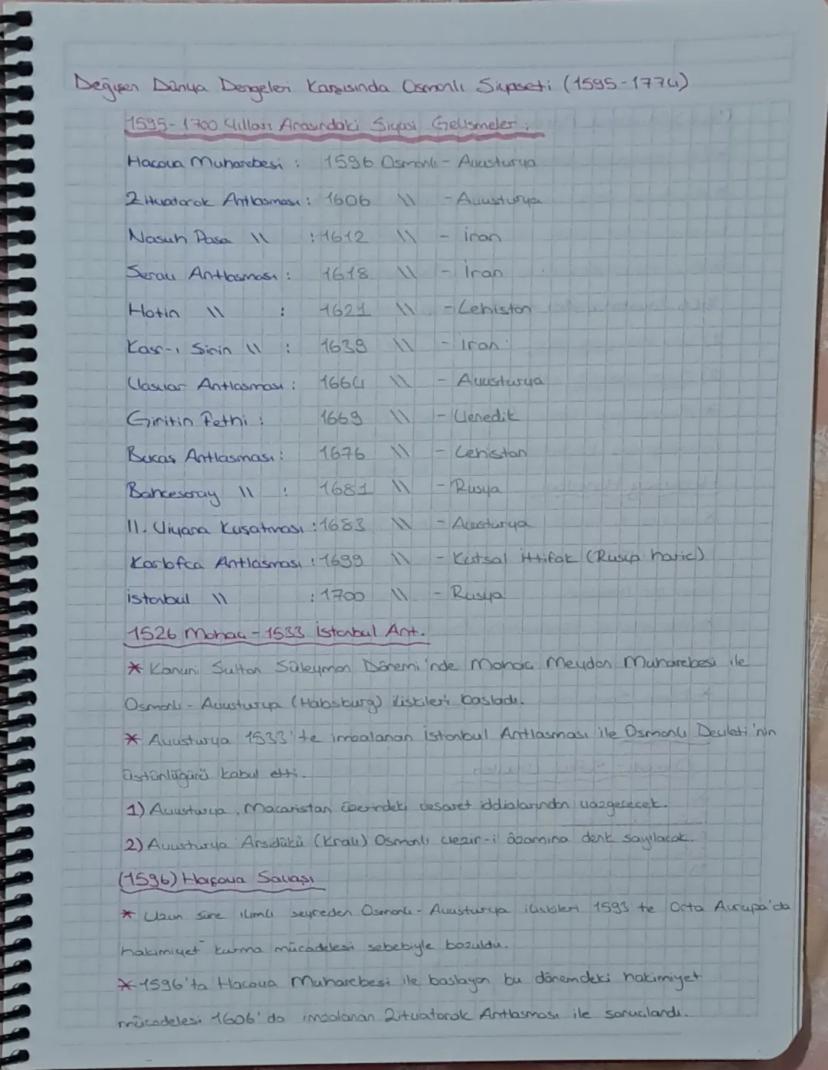 Değişen Dünya Dengeleri Karşısında Osmanlı Siyaseti (1595-1774)
1595-1700 Yılları Arasındaki Siyasi Gelişmeler:
Haçova Muharebesi : 1596 Osmanlı - Avusturya
Zitvatorok Antlaşması : 1606 \\ - Avusturya
Nasuh Paşa \\ : 1612 \\ - İran
Serav Antlaşması : 1618 \\ - İran
Hotin \\ : 1621 \\ - Lehistan
Kasr-ı Şirin \\ : 1639 \\ - İran
Vasvar Antlaşması : 1664 \\ - Avusturya
Giritin Fethi : 1669 \\ - Venedik
Bucaş Antlaşması : 1676 \\ - Lehistan
Bahçesaray \\ : 1681 \\ - Rusya
II. Viyana Kuşatması : 1683 \\ - Avusturya
Karlofça Antlaşması : 1699 \\ - Kutsal İttifak (Rusya hariç)
İstanbul \\ : 1700 \\ - Rusya
1526 Mohaç - 1533 İstanbul Ant.
* Kanuni Sultan Süleyman Dönemi'nde Mohaç Meydan Muharebesi ile
Osmanlı - Avusturya (Habsburg) ilişkileri başladı.
* Avusturya 1533'te imzalanan İstanbul Antlaşması ile Osmanlı Devleti'nin
üstünlüğünü kabul etti.
1) Avusturya, Macaristan üzerindeki veraset iddialarından vazgeçecek.
2) Avusturya Arşidükü (Kralı) Osmanlı vezir-i azamına denk sayılacak.
(1596) Haçova Savaşı
* Uzun süre ılımlı seyreden Osmanlı - Avusturya ilişkileri 1593'te Orta Avrupa'da
hakimiyet kurma mücadelesi sebebiyle bozuldu.
* 1596'ta Haçova Muharebesi ile başlayan bu dönemdeki hakimiyet
mücadelesi 1606'da imzalanan Zitvatorok Antlaşması ile sonuçlandı.